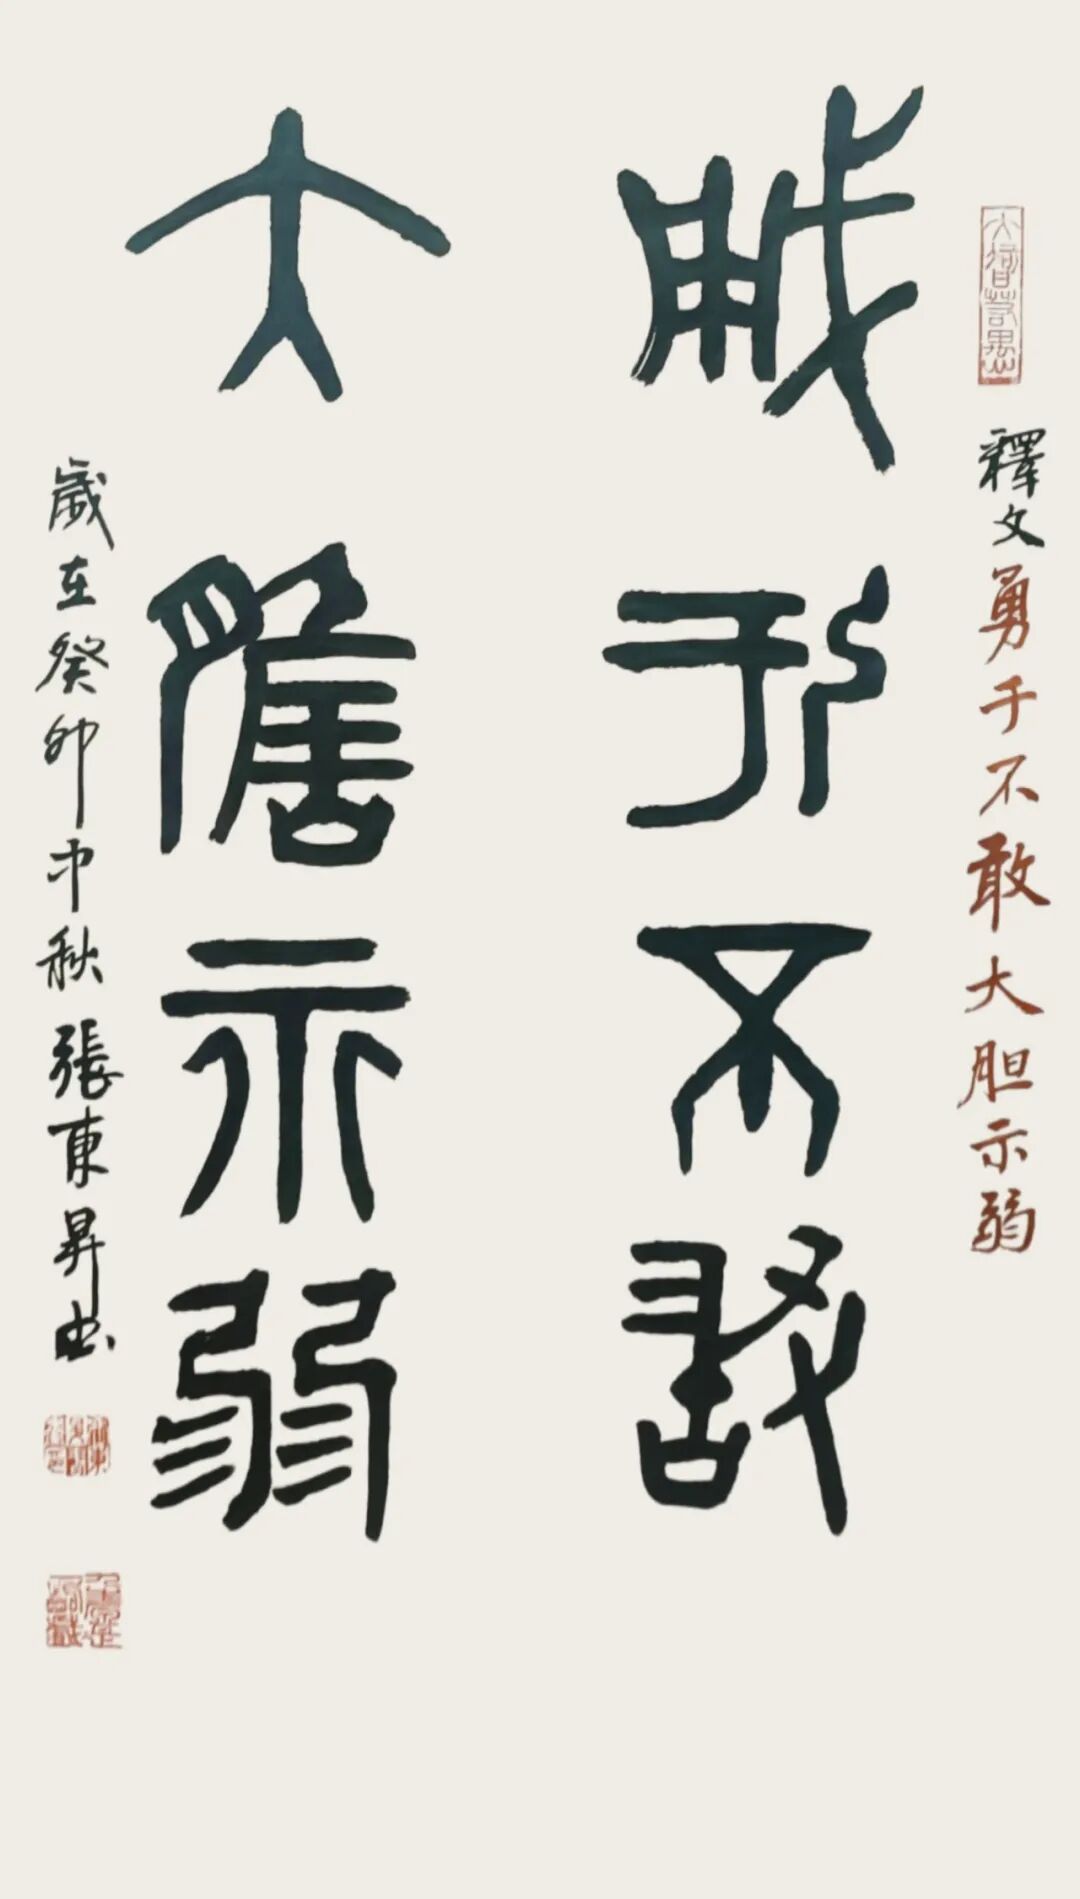 大智若愚
釋文勇于不敢大胆示弱
勇于不敢
大膽示弱
歲在癸卯中秋張東昇书